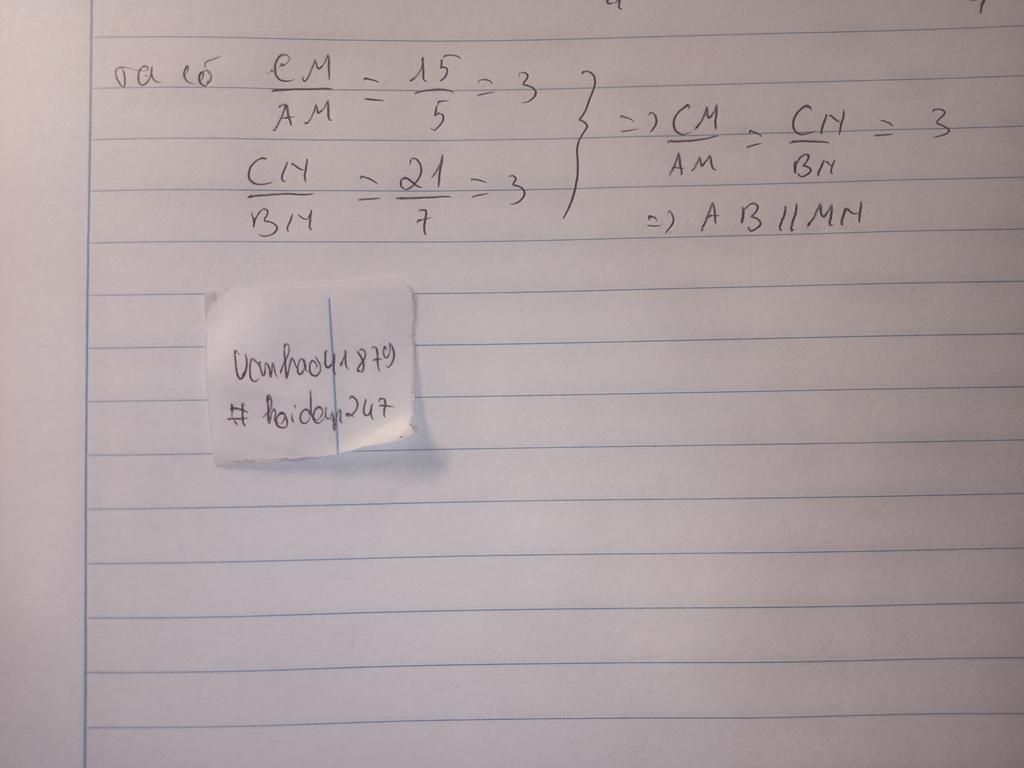 ta có CM/AM = 15/5 = 3
CN/BN = 21/7 = 3
} => CM/AM = CN/BN = 3
=> AB // MN
Vanhao41879
# hoidap247